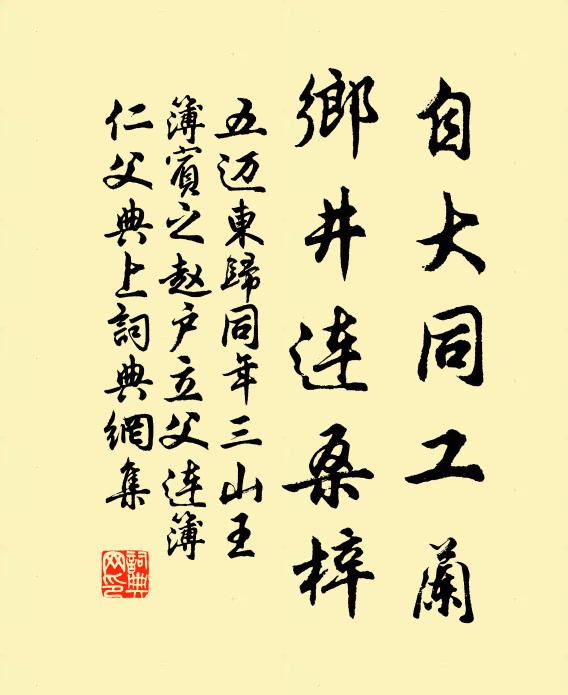 自大同工蘭
鄉井連桑梓
五迈東歸同年三山王
簿賓之赵户立父連簿
仁父典上詞典網集
詞典網印